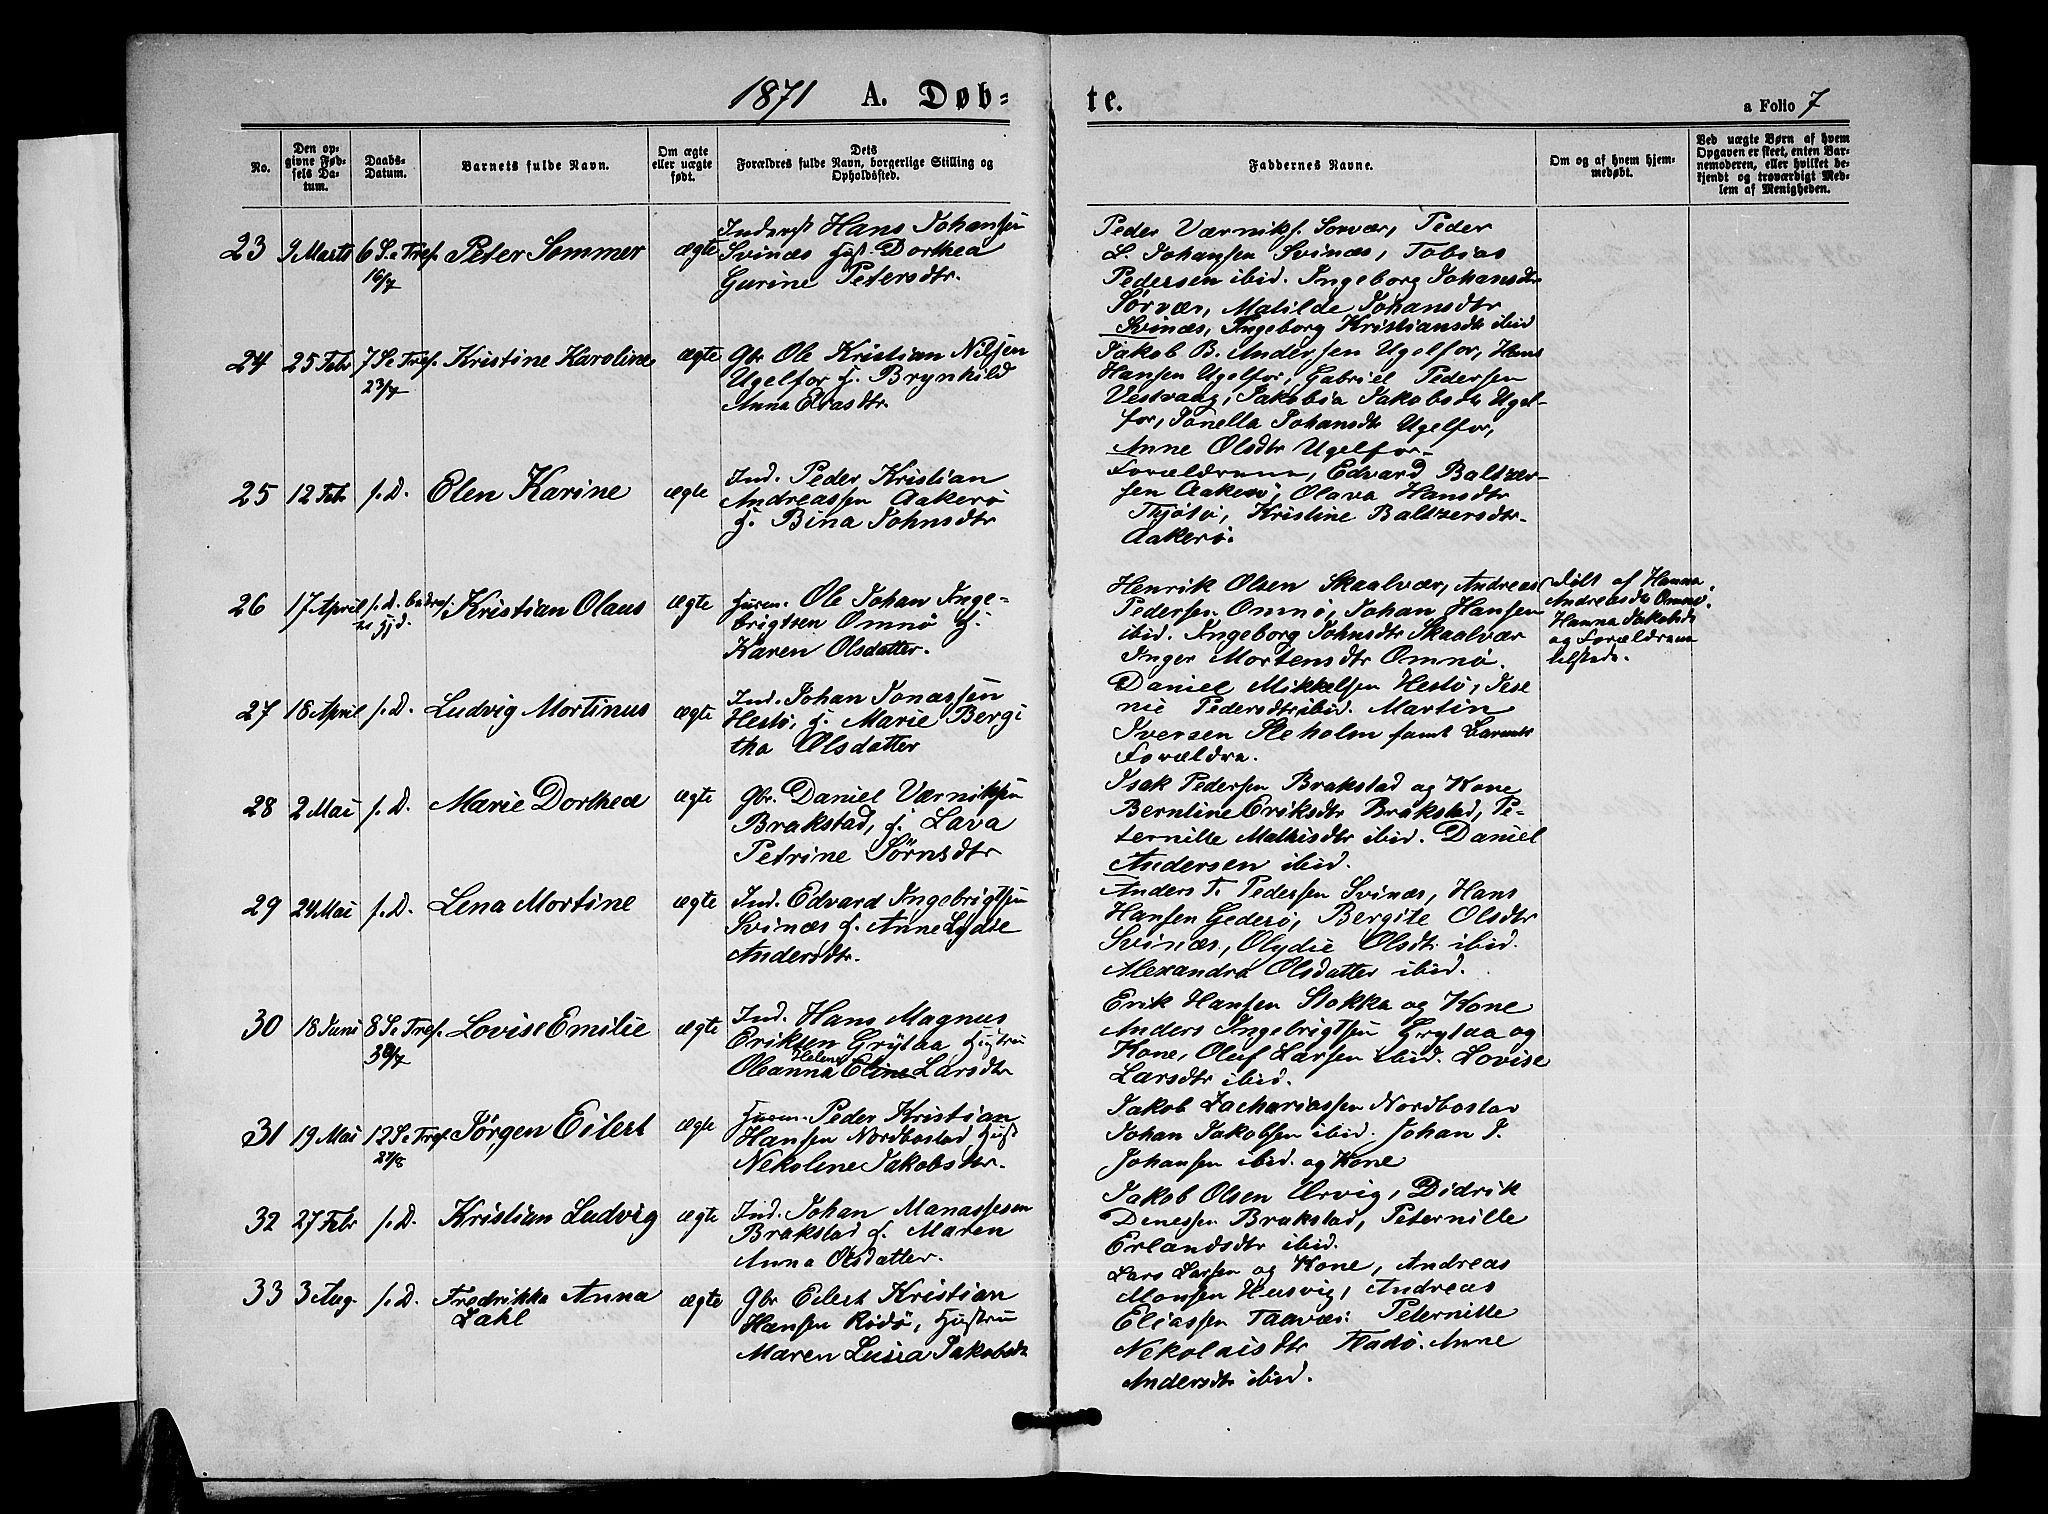 1871 A. Døb-
te.
a Folio 7
No.
Den op-
givne Fød-
sels Da-
tum.
Daabs-
Datum.
Barnets fulde Navn.
Om ægte
eller uægte
født.
Dets
Forældres fulde Navn, borgerlige Stilling og
Opholdssted.
Faddernes Navne.
Om og af hvem hjem-
medøbt.
Ved uægte Børn af hvem
Opgaven er skeet, enten Bar-
nemoderen, eller hvilket be-
kjendt og troværdigt Med-
lem af Menigheden.
23 9 Marts 6 S. e Tref. Peter Sommer ægte
16/7
Inderst Hans Johansen
Svinæs Hust. Dorthea
Gurine Petersdtr.
Peder Værniks. Sørvær, Peder
L. Johansen Svinæs, Tobias
Pedersen ibid. Ingeborg Johansdtr
Sørvær, Matilde Johansdtr
Svinæs, Ingeborg Kristiansdtr ibid
24 25 Febr 7 S e Tref. Kristine Karoline ægte
23/7
Gbr Ole Kristian Nilsen
Ugelfor H. Brynhild
Anna Eliasdtr.
Jakob B. Andersen Ugelfor, Hans
Hansen Ugelfor, Gabriel Pedersen
Vestvaag, Jakobia Jakobsdtr Ugel-
for, Tonella Johansdtr Ugelfor,
Anne Olsdtr Ugelfor
25 12 Febr s. D. Elen Karine ægte
Ind. Peder Kristian
Andreassen Aakerø
H. Bina Johnsdtr
Forældrene, Edvard Baltzer-
sen Aakerø, Olava Hansdtr
Thjøtø, Kristine Baltzersdtr
Aakerø.
26 17 April s. D. Kristian Olaus ægte
Husm. Ole Johan Inge-
brigtsen Omnø H.
Karen Olsdatter.
Henrik Olsen Skaalvær, Andreas
Pedersen Omnø, Johan Hansen
ibid. Ingeborg Johnsdtr Skaalvær
Inger Mortensdtr Omnø.
Døbt af Hanna
Andreasdtr Omnø.
Hanna Jakobsdtr
og Forældrene
tilstede.
27 18 April s. D. Ludvig Mortinus ægte
Ind. Johan Jonassen
Hestø, H. Marie Bergi
tha Olsdatter
Daniel Mikkelsen Hestø, Jese
nie Pedersdtr ibid. Martin
Iversen Steholm samt Barnets
Forældre.
28 2 Mai s. D. Marie Dorthea ægte
Gbr. Daniel Værniksen
Brakstad, H. Lava
Petrine Sørnsdtr
Isak Pedersen Brakstad og Kone
Berntine Eriksdtr Brakstad, Pe-
ternille Mathisdtr ibid. Daniel
Andersen ibid.
29 24 Mai s. D. Lena Mortine ægte
Ind. Edvard Ingebrigtsen
Svinæs H. Anne Lydie
Andersdtr.
Anders T. Pedersen Svinæs, Hans
Hansen Gederø, Bergite Olsdtr
Svinæs, Olydie Olsdtr ibid.
Alexandra Olsdatter ibid.
30 18 Juni 8 S. e Tref. Lovise Emilie ægte
30/7
Ind. Hans Magnus
Eriksen Grytaa Hustru
Helene
Oleanna Eline Larsdtr
Erik Hansen Stokka og Kone
Anders Ingebrigtsen Grytaa og
Kone, Oluf Larsen ibid. Lovise
Larsdtr ibid.
31 19 Mai 12 S. e Tref. Jørgen Eilert ægte
27/8
Husm. Peder Kristian
Hansen Nordbostad Hust
Nekoline Jakobsdtr.
Jakob Zachariassen Nordbostad
Johan Jakobsen ibid. Johan J.
Johansen ibid. og Kone
32 27 Febr s. D. Kristian Ludvig ægte
Ind. Johan Manassesen
Brakstad H. Maren
Anna Olsdatter.
Jakob Olsen Urvig, Didrik
Denessen Brakstad, Peternille
Erlandsdtr ibid.
33 3 Aug. s. D. Fredrikke Anna ægte
Zahl
Gbr Eilert Kristian
Hansen Rødø, Hustru
Maren Lusia Jakobsdtr
Lars Larsen og Kone, Andreas
Monsen Husvig, Andreas
Eliassen Taavær: Peternille
Nekolaisdtr Fladø. Anne
Andersdtr ibid.